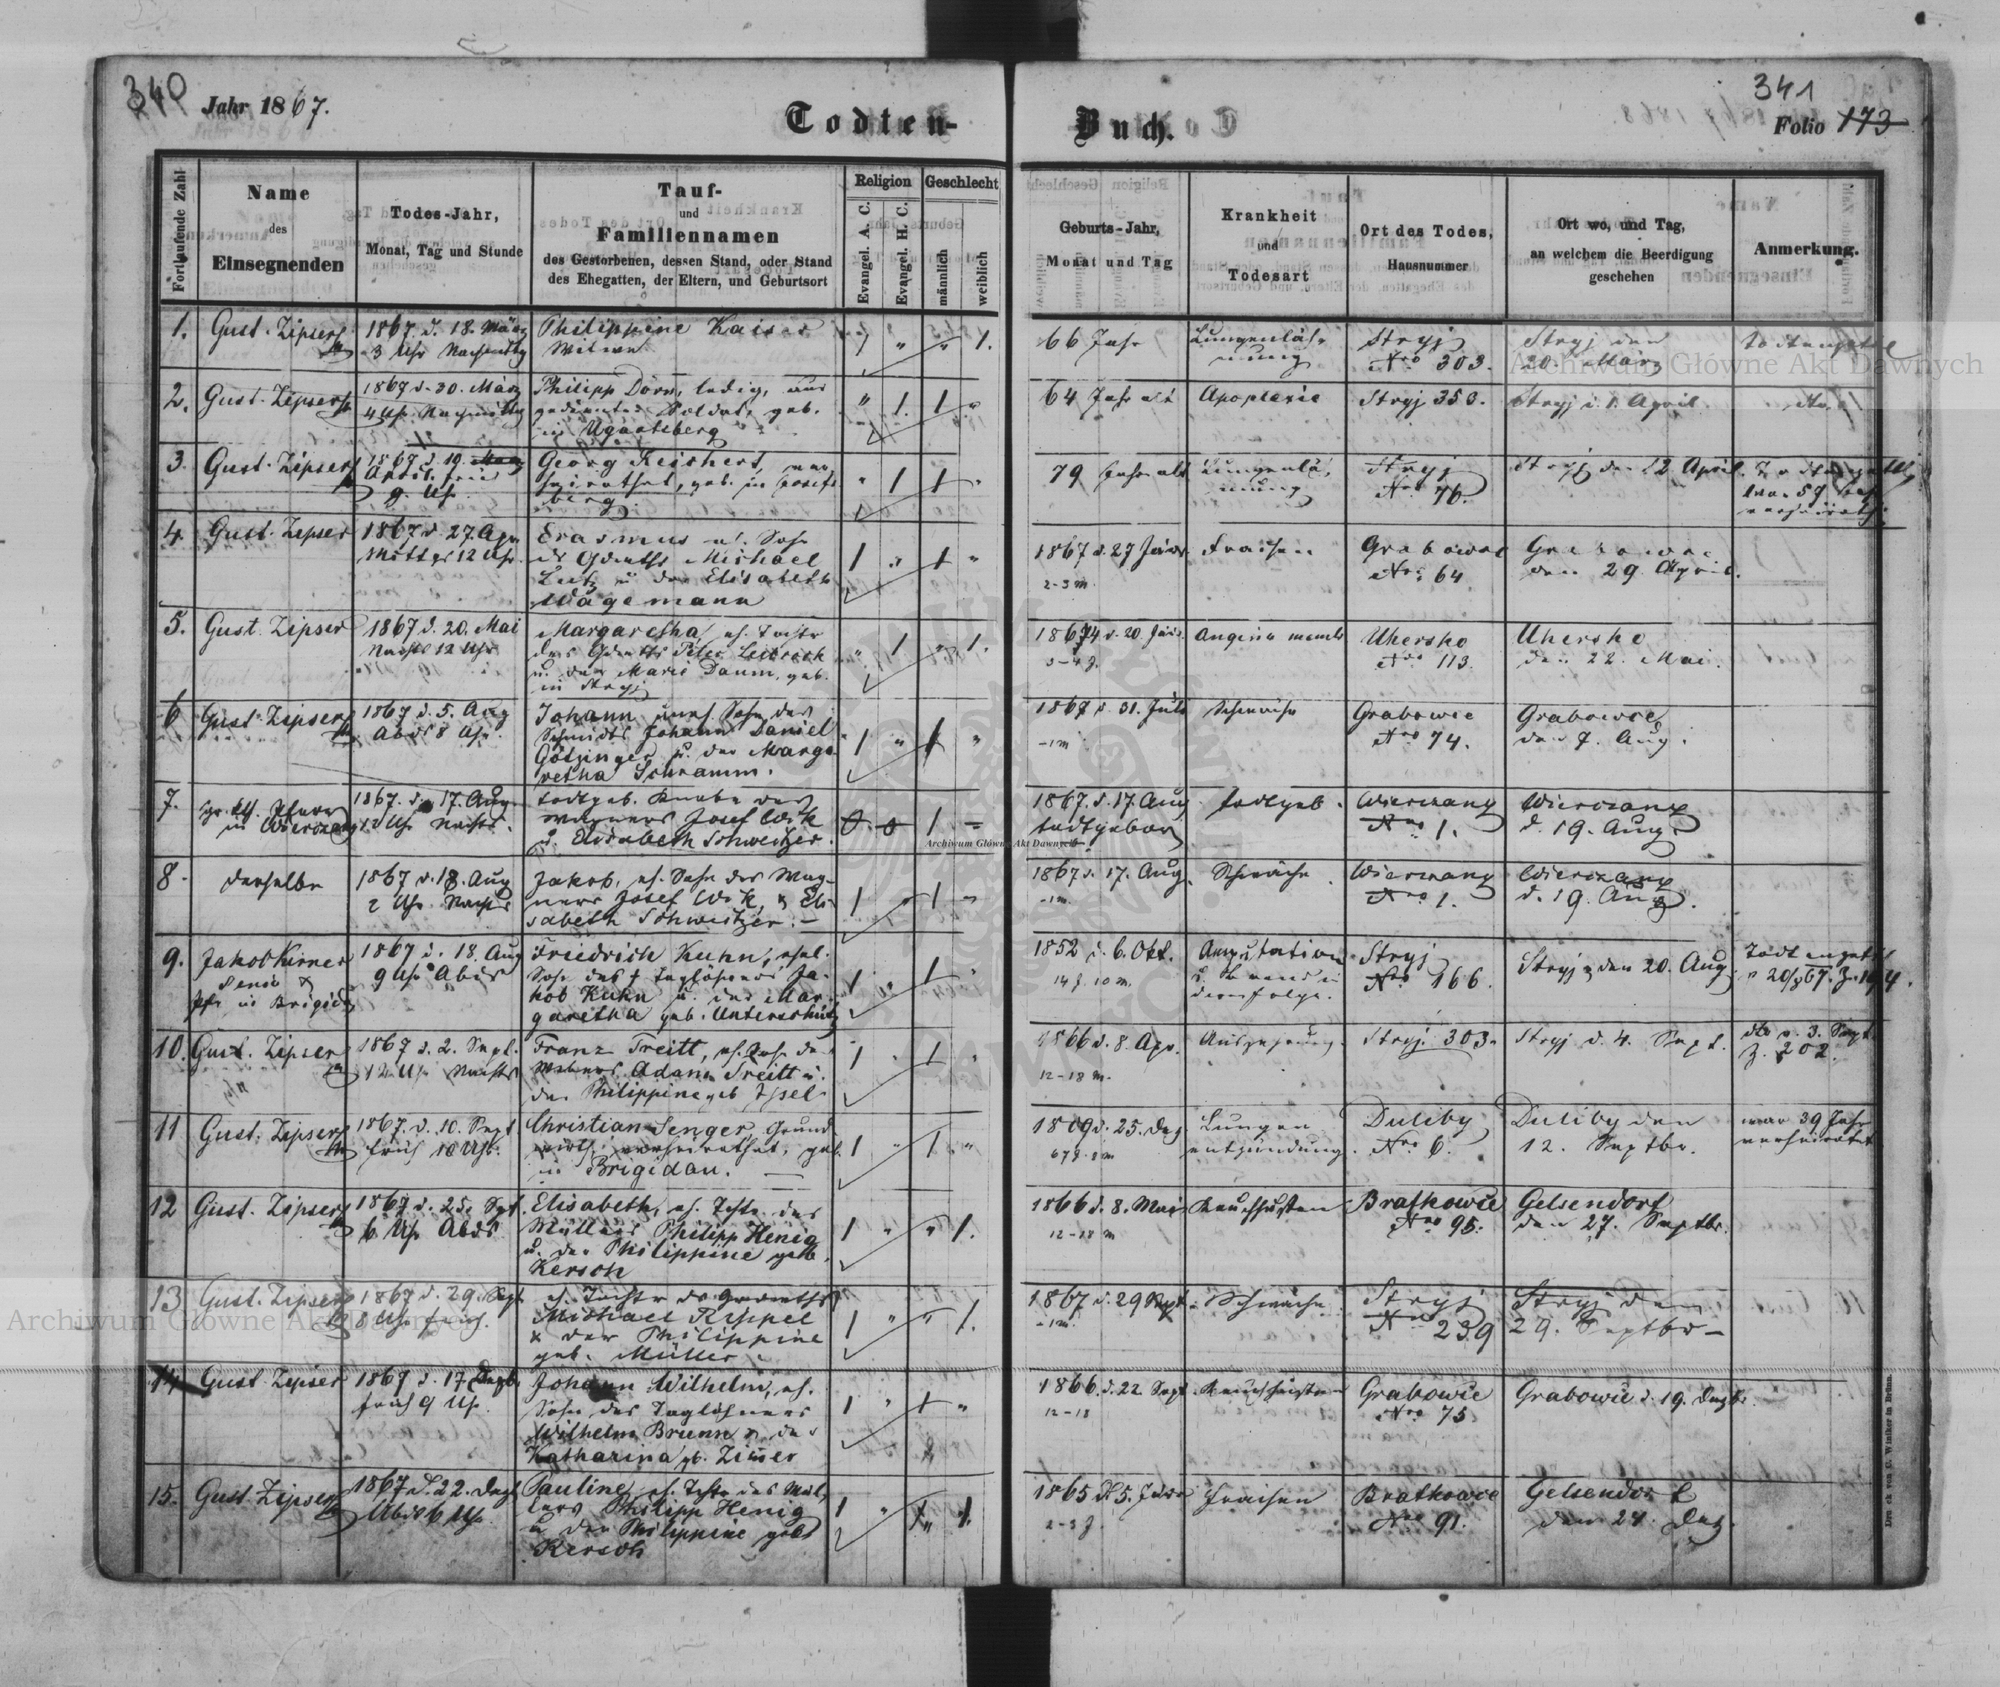 340
Jahr 1867.
Todten-
Buch.
341
Folio 173
Fortlaufende Zahl
Name
des
Einsegnenden
Todes-Jahr,
Monat, Tag und Stunde
Tauf-
und
Familiennamen
des Gestorbenen, dessen Stand, oder Stand
des Ehegatten, der Eltern, und Geburtsort
Religion
Evangel. A. C.
Evangel. H. C.
Geschlecht
männlich
weiblich
Geburts-Jahr,
Monat und Tag
Krankheit
und
Todesart
Ort des Todes,
Hausnummer
Ort wo, und Tag,
an welchem die Beerdigung
geschehen
Anmerkung.
1.
Gust. Zipser
1867 d. 18. März
3 Uhr
Philippine Kaiser
Witwe
1.
66 Jahr
Lungenläh-
mung
Stryj
Nro 303.
Stryj den
20. März
2.
Gust. Zipser
1867 d. 30. März
4 Uhr
Philipp Dorn, ledig, aus
gedienter Soldat, geb.
in Ugartsberg
" 1. 1 "
64 Jahr alt
Apoplexie
Stryj 353.
Stryj d. 1. April
3.
Gust. Zipser
1867 d. 10. März
April
9. Uhr
Georg Reichert, ver
heirathet, geb. in Josefs
berg
" 1 1 "
79 Jahr alt
Lungenläh-
mung
Stryj
Nro 76.
Stryj den 12 April.
4.
Gust. Zipser
1867 d. 27. Apr.
Mittgs 12 Uhr
Erasmus eh. Sohn
Michael
u der Elisabeth
Wagemann
1 " 1 "
1867 d. 27 Jänr.
2-3 m.
Fraisen
Grabowce
Nro 64
Grabowce
den 29. April.
5.
Gust. Zipser
1867 d. 20. Mai
Nachts 12 Uhr
Margaretha, eh. Tochter
des Peter
u. der Marie Daum, geb.
in Stryj
" 1 " 1.
1864 d. 20. Jän.
3-4 J.
Angina memb
Uhersko
Nro 113.
Uhersko
den 22. Mai.
6
Gust. Zipser
1867 d. 5. Aug
Abds 8 Uhr
Johann, Sohn des
Schmidts Johann Daniel
Götzinger u. der Marga
retha Schramm.
1 " 1 "
1867 d. 31. Juli
-1m
Schwäche
Grabowce
Nro 74.
Grabowce,
den 7. Aug.
7.
gr. kth. Pfarrer
in Wierczany
1867. d. 17. Aug.
12 Uhr Nachts.
todtgeb. Knabe des
Wagners Josef Wik
u. Elisabeth Schweitzer.
0 0 1 -
1867. d. 17. Aug
todtgeboren
todtgeb.
Wierczany
Nro 1.
Wierczany
d. 19. Aug.
8.
derselbe
1867 d. 18. Aug
2 Uhr Nachts
Jakob, eh. Sohn des Wag-
ners Josef Wik, & Eli-
sabeth Schweitzer. -
1 " 1 "
1867 d. 17. Aug.
-1m.
Schwäche.
Wierczany
Nro 1.
Wierczany
d. 19. Aug.
9.
Jakob Kirner
Senior &
Pfr in Brigidau
1867 d. 18. Aug
9 Uhr Abds
Friedrich Kuhn, ehel.
Sohn des † Taglöhners Ja-
kob Kuhn u. der Mar-
garetha geb. Unterschütz
1 " 1 "
1852 d. 6. Okt.
14 J. 10 m.
Amputation
u. Brand in
deren Folge.
Stryj
Nro 166.
Stryj, den 20. Aug
10.
Gust. Zipser
1867 d. 2. Sept.
12 Uhr Nachts
Franz Treitt, eh. Sohn des
Webers Adam Treitt u.
der Philippine geb
1 " 1 "
1866 d. 8. Apr.
12-18 m.
Auszehrung
Stryj 303.
Stryj d. 4. Sept.
dto v. 3. Sept
Z. 202.
11
Gust. Zipser
1867. d. 10. Sept
früh 10 Uhr.
Christian Senger, Grund
wirth, verheirathet, geb.
in Brigidau.
1 " 1 "
1809 d. 25. Dez
67 J. 8 m
Lungen
entzündung.
Duliby
Nro 6.
Duliby den
12. Septbr.
war 39 Jahr
verheiratet
12
Gust. Zipser
1867 d. 25. Spt.
6 Uhr Abds
Elisabeth, eh. Tochter des
Müllers Philipp Henig
u. der Philippine geb.
Kersch
1 " " 1.
1866 d. 8. Mai
12-18 m
Keuchhusten
Bratkowce
Nro 95.
Gelsendorf
den 27. Septbr.
13
Gust. Zipser
1867 d. 29. Sept
8 Uhr früh.
eh. Tochter des
Michael Rippel
& der Philippine
geb. Müller.
1 " " 1.
1867 d. 29 Sept.
-1m.
Schwäche
Stryj
Nro 239
Stryj den
29. Septbr-
14
Gust. Zipser
1867 d. 17. Dezbr
früh 9 Uhr.
Johann Wilhelm, eh.
Sohn des Taglöhners
Wilhelm Brunn & der
Katharina gb. Zimer
1 " 1 "
1866. d. 22. Sept.
12-18
Keuchhusten
Grabowce
Nro 75
Grabowce d. 19. Dezbr.
15.
Gust. Zipser
1867 d. 22. Dezb
Abds 6 Uhr.
Pauline, eh. Tochter des Mül-
lers Philipp Henig
u der Philippine geb
Kersch
1 " " 1.
1865 d 5. Jänr
2-3 J.
Fraisen
Bratkowce
Nro 91.
Gelsendorf
den 24. Dez.
Druck von C. Winiker in Brünn.
Archiwum Główne Akt Dawnych
Archiwum Główne Akt Dawnych
Archiwum Główne Akt Dawnych